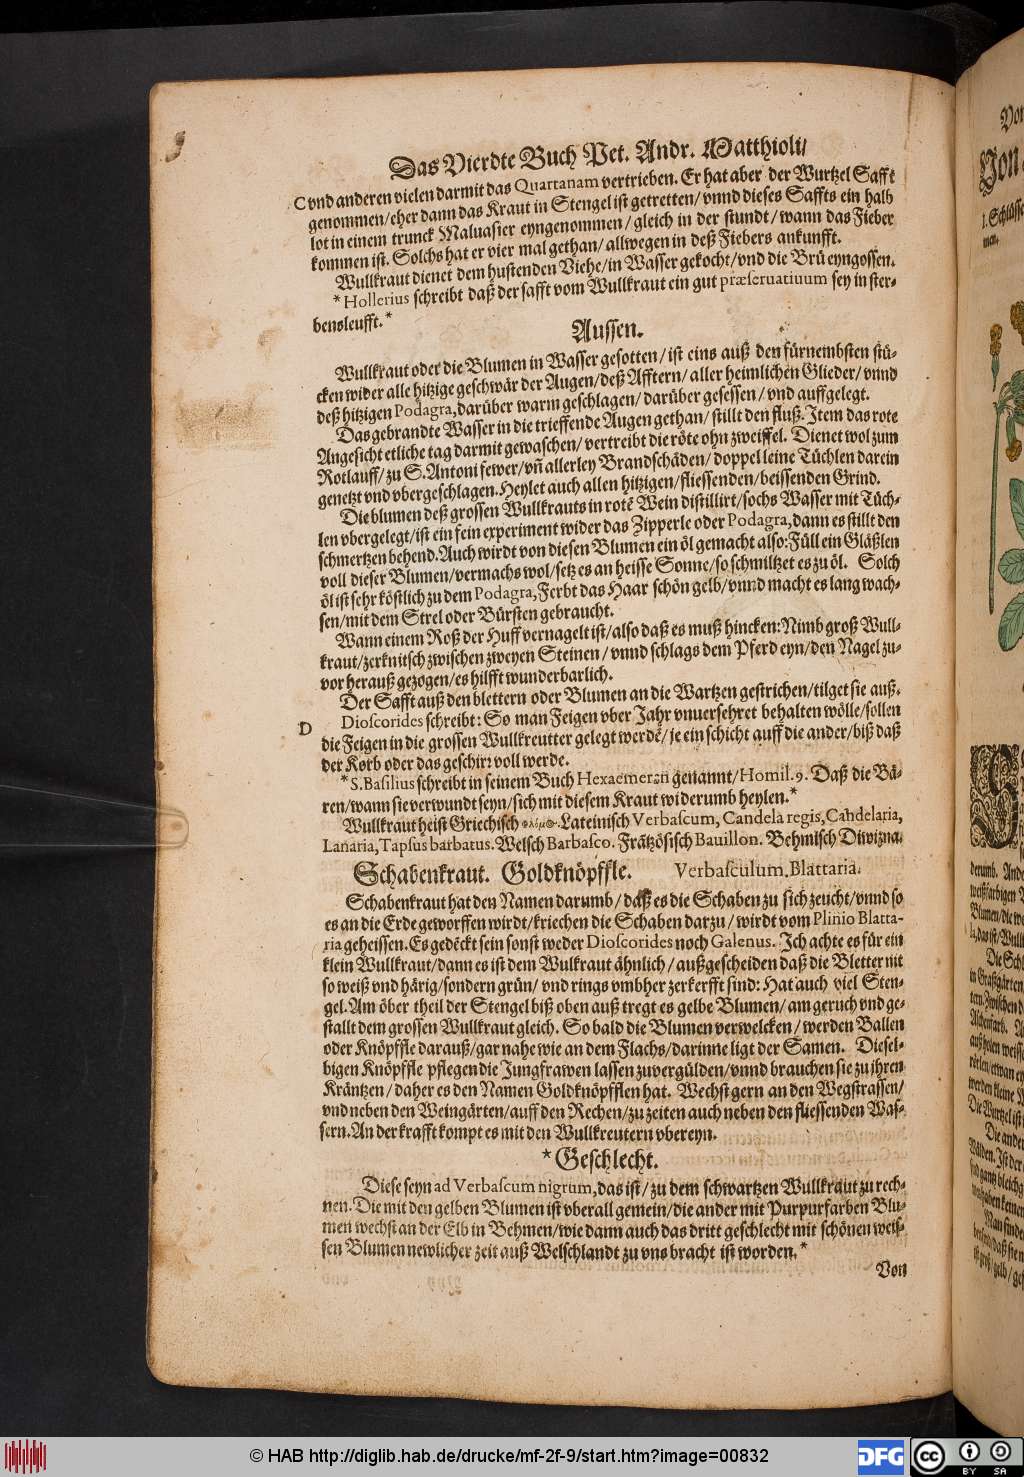 Das Vierdte Buch Pet. Andr. Matthioli/
C vnd anderen vielen darmit das Quartanam vertrieben. Er hat aber der Wurtzel Safft
genommen/eher dann das Kraut in Stengel ist getretten/vnnd dieses Saffts ein halb
lot in einem trunck Maluasier eyngenommen/gleich in der stundt/wann das Fieber
kommen ist. Solchs hat er vier mal gethan/allwegen in deß Fiebers ankunfft.
Wullkraut dienet dem hustenden Viehe/in Wasser gekocht/vnd die Brü eyngossen.
*Hollerius schreibt daß der safft vom Wullkraut ein gut præseruatiuum sey in ster-
bensleufft.*
Aussen.
Wullkraut oder die Blumen in Wasser gesotten/ist eins auß den fürnembsten stü-
cken wider alle hitzige geschwär der Augen/deß Afftern/aller heimlichen Glieder/vnnd
deß hitzigen Podagra,darüber warm geschlagen/darüber gesessen/vnd auffgelegt.
Das gebrandte Wasser in die trieffende Augen gethan/stillt den fluß. Item das rote
Angesicht etliche tag darmit gewaschen/vertreibt die röte ohn zweiffel. Dienet wol zum
Rotlauff/zu S. Antoni fewer/vñ allerley Brandschäden/doppel leine Tüchlen darein
genetzt vnd vbergeschlagen. Heylet auch allen hitzigen/fliessenden/beissenden Grind.
Die blumen deß grossen Wullkrauts in rotẽ Wein distillirt/sochs Wasser mit Tüch-
len vbergelegt/ist ein fein experiment wider das Zipperle oder Podagra,dann es stillt den
schmertzen behend. Auch wirdt von diesen Blumen ein öl gemacht also: Füll ein Gläßlen
voll dieser Blumen/vermachs wol/setz es an heisse Sonne/so schmiltzet es zu öl. Solch
öl ist sehr köstlich zu dem Podagra, Ferbt das Haar schön gelb/vnnd macht es lang wach-
sen/mit dem Strel oder Bürsten gebraucht.
Wann einem Roß der Huff vernagelt ist/also daß es muß hincken: Nimb groß Wull-
kraut/zerknitsch zwischen zweyen Steinen/vnnd schlags dem Pferd eyn/den Nagel zu-
vor herauß gezogen/es hilfft wunderbarlich.
Der Safft auß den blettern oder Blumen an die Wartzen gestrichen/tilget sie auß.
D Dioscorides schreibt: So man Feigen vber Jahr vnuersehret behalten wölle/sollen
die Feigen in die grossen Wullkreutter gelegt werdẽ/je ein schicht auff die ander/biß daß
der Korb oder das geschirr voll werde.
*S. Basilius schreibt in seinem Buch Hexaemeron genannt/Homil.9. Daß die Bä-
ren/wann sie verwundt seyn/sich mit diesem Kraut widerumb heylen.*
Wullkraut heist Griechisch φλόμος. Lateinisch Verbascum, Candela regis, Candelaria,
Lanaria, Tapsus barbatus. Welsch Barbasco. Frãtzösisch Bauillon. Behmisch Diwizna.
Schabenkraut. Goldknöpffle. Verbasculum, Blattaria.
Schabenkraut hat den Namen darumb/daß es die Schaben zu sich zeucht/vnnd so
es an die Erde geworffen wirdt/kriechen die Schaben darzu/wirdt vom Plinio Blatta-
ria geheissen. Es gedẽckt sein sonst weder Dioscorides noch Galenus. Jch achte es für ein
klein Wullkraut/dann es ist dem Wulkraut ähnlich/außgescheiden daß die Bletter nit
so weiß vnd härig/sondern grün/vnd rings vmbher zerkerfft sind: Hat auch viel Sten-
gel. Am öber theil der Stengel biß oben auß tregt es gelbe Blumen/am geruch vnd ge-
stallt dem grossen Wullkraut gleich. So bald die Blumen verwelcken/werden Ballen
oder Knöpffle darauß/gar nahe wie an dem Flachs/darinne ligt der Samen. Diesel-
bigen Knöpffle pflegen die Jungfrawen lassen zuvergülden/vnnd brauchen sie zu jhren
Kräntzen/daher es den Namen Goldknöpfflen hat. Wechst gern an den Wegstrassen/
vnd neben den Weingärten/auff den Rechen/zu zeiten auch neben den fliessenden Was-
sern. An der krafft kompt es mit den Wullkreutern vbereyn.
*Geschlecht.
Diese seyn ad Verbascum nigrum, das ist/zu dem schwartzen Wullkraut zu rech-
nen. Die mit den gelben Blumen ist vberall gemein/die ander mit Purpurfarben Blu-
men wechst an der Elb in Behmen/wie dann auch das dritt geschlecht mit schönen weis-
sen Blumen newlicher zeit auß Welschlandt zu vns bracht ist worden.*
Von
© HAB http://diglib.hab.de/drucke/mf-2f-9/start.htm?image=00832
DFG
cc BY SA